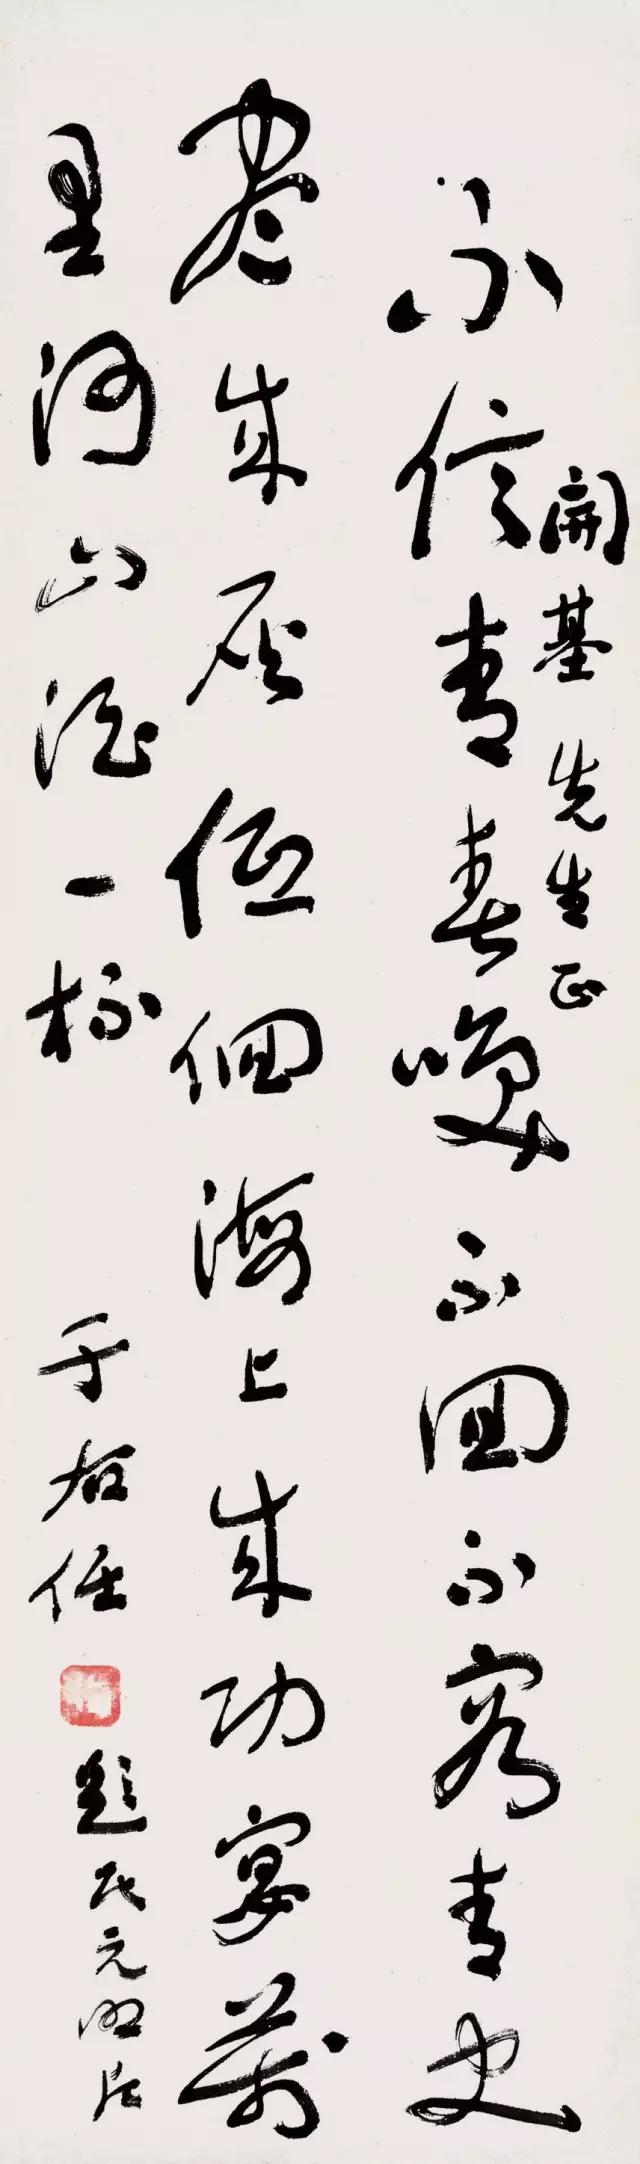 開基先生正
不信青春喚不回不容青史
盡成灰低佪海上成功宴萬
里河山酒一杯
于右任
題民元照片